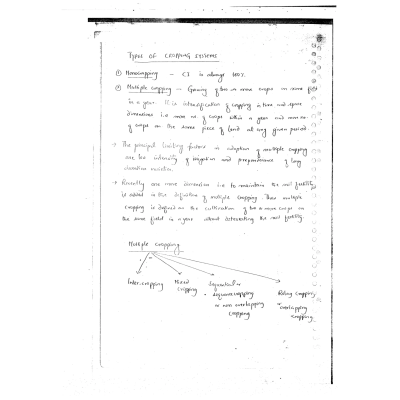 TYPES OF CROPPING SYSTEMS
① Monocropping - CI is always 100%.
② Multiple cropping - Growing of two or more crops on same field
in a year. It is intensification of cropping in time and space
dimensions i.e more no. of crops within a year and more no.
of crops on the same piece of land at any given period.
→ The principal limiting factors in adoption of multiple cropping
are low intensity of irrigation and preponderance of long
duration varieties.
→ Recently one more dimension i.e to maintain the soil fertility
is added in the definition of multiple cropping. Thus multiple
cropping is defined as the cultivation of two or more crops on
the same field in a year without deteriorating the soil fertility.
Multiple cropping
Inter cropping
Mixed cropping
Sequential or sequence cropping or non overlapping cropping
Relay cropping or overlapping cropping